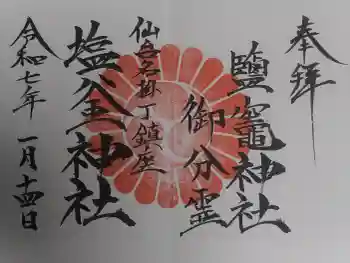 奉拝
鹽竈神社
御分霊
仙台名掛丁鎮座
塩釜神社
令和七年 一月十四日